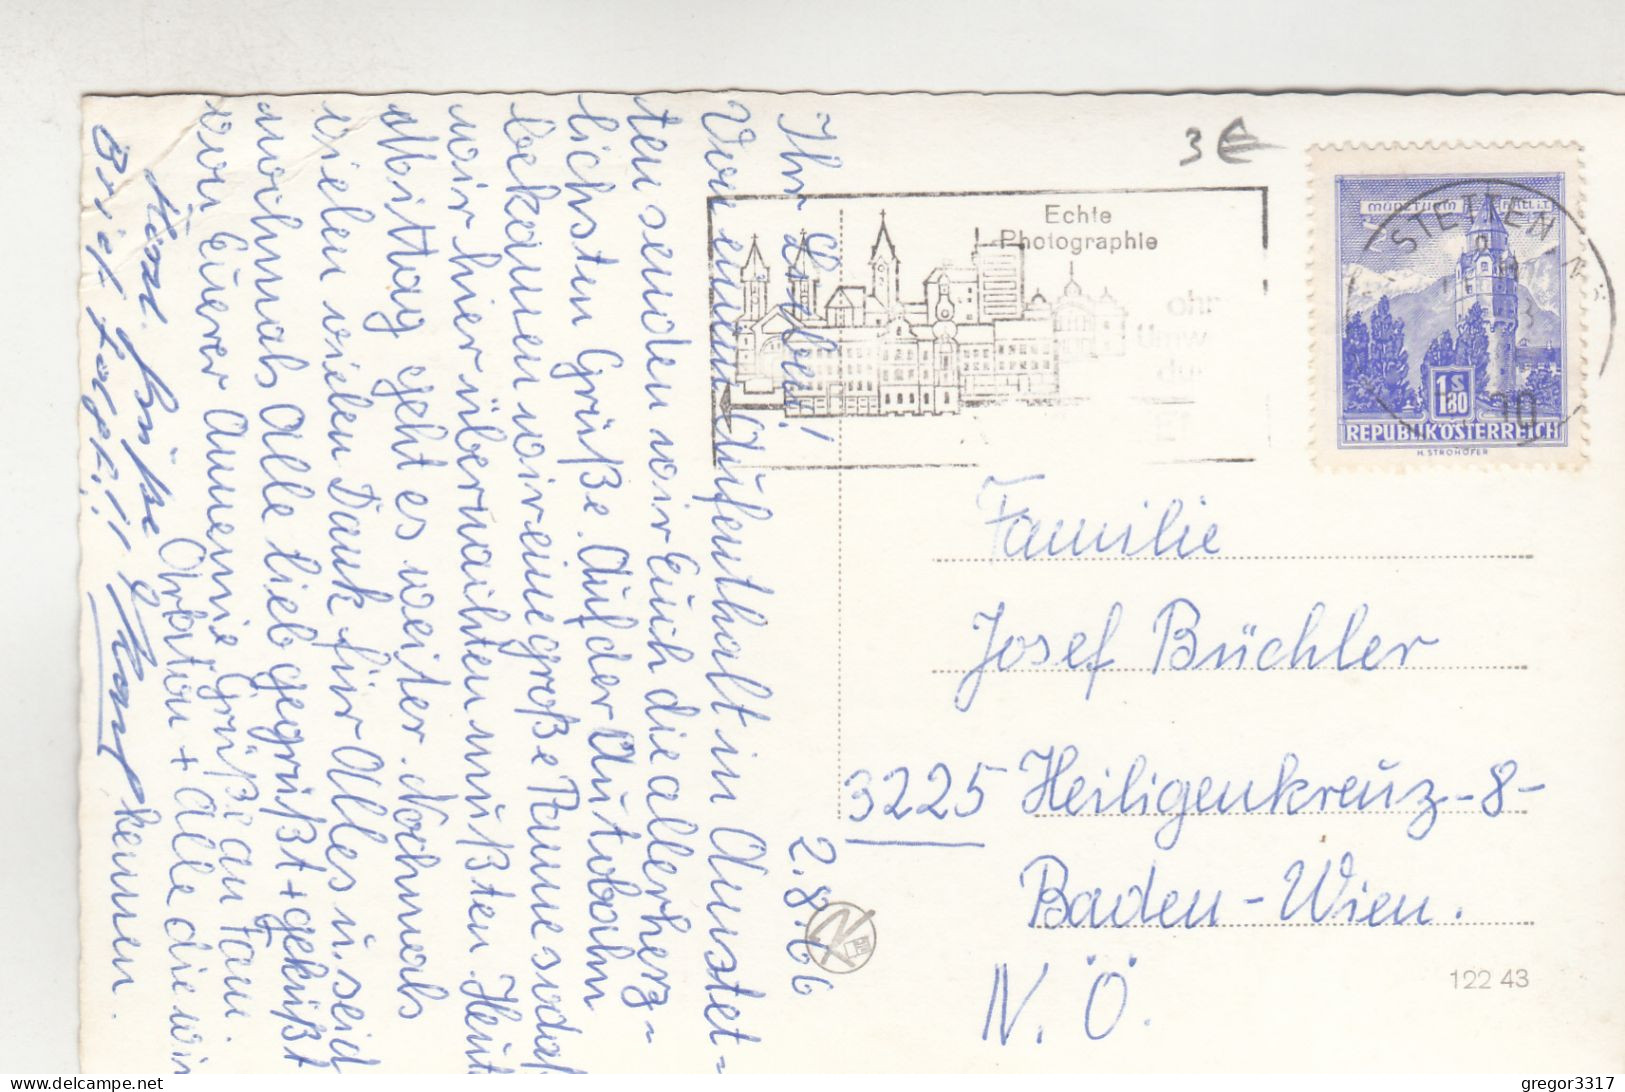 2.8.66
Ihr Lieben!
Von einem Aufenthalt in Amstet-
ten senden wir Euch die allerherz-
lichsten Grüße. Auf der Autobahn
bekamen wir eine große Panne sodaß
wir hier übernachten mußten. Heute
Mittag geht es weiter. Nochmals
vielen vielen Dank für Alles u. seid
nochmals Alle lieb gegrüßt + geküßt
von Eurer Annemie Grüße an Fam.
+ Alle die wir
kennen.
Brief folgt!!!
3 €
Echte
Photographie
STETTEN
MÜNZTURM HALL I.T.
1S
80
REPUBLIK ÖSTERREICH
H. STROHOFER
Familie
Josef Büchler
3225 Heiligenkreuz -8-
Baden - Wien.
N.Ö.
122 43
gregor3317